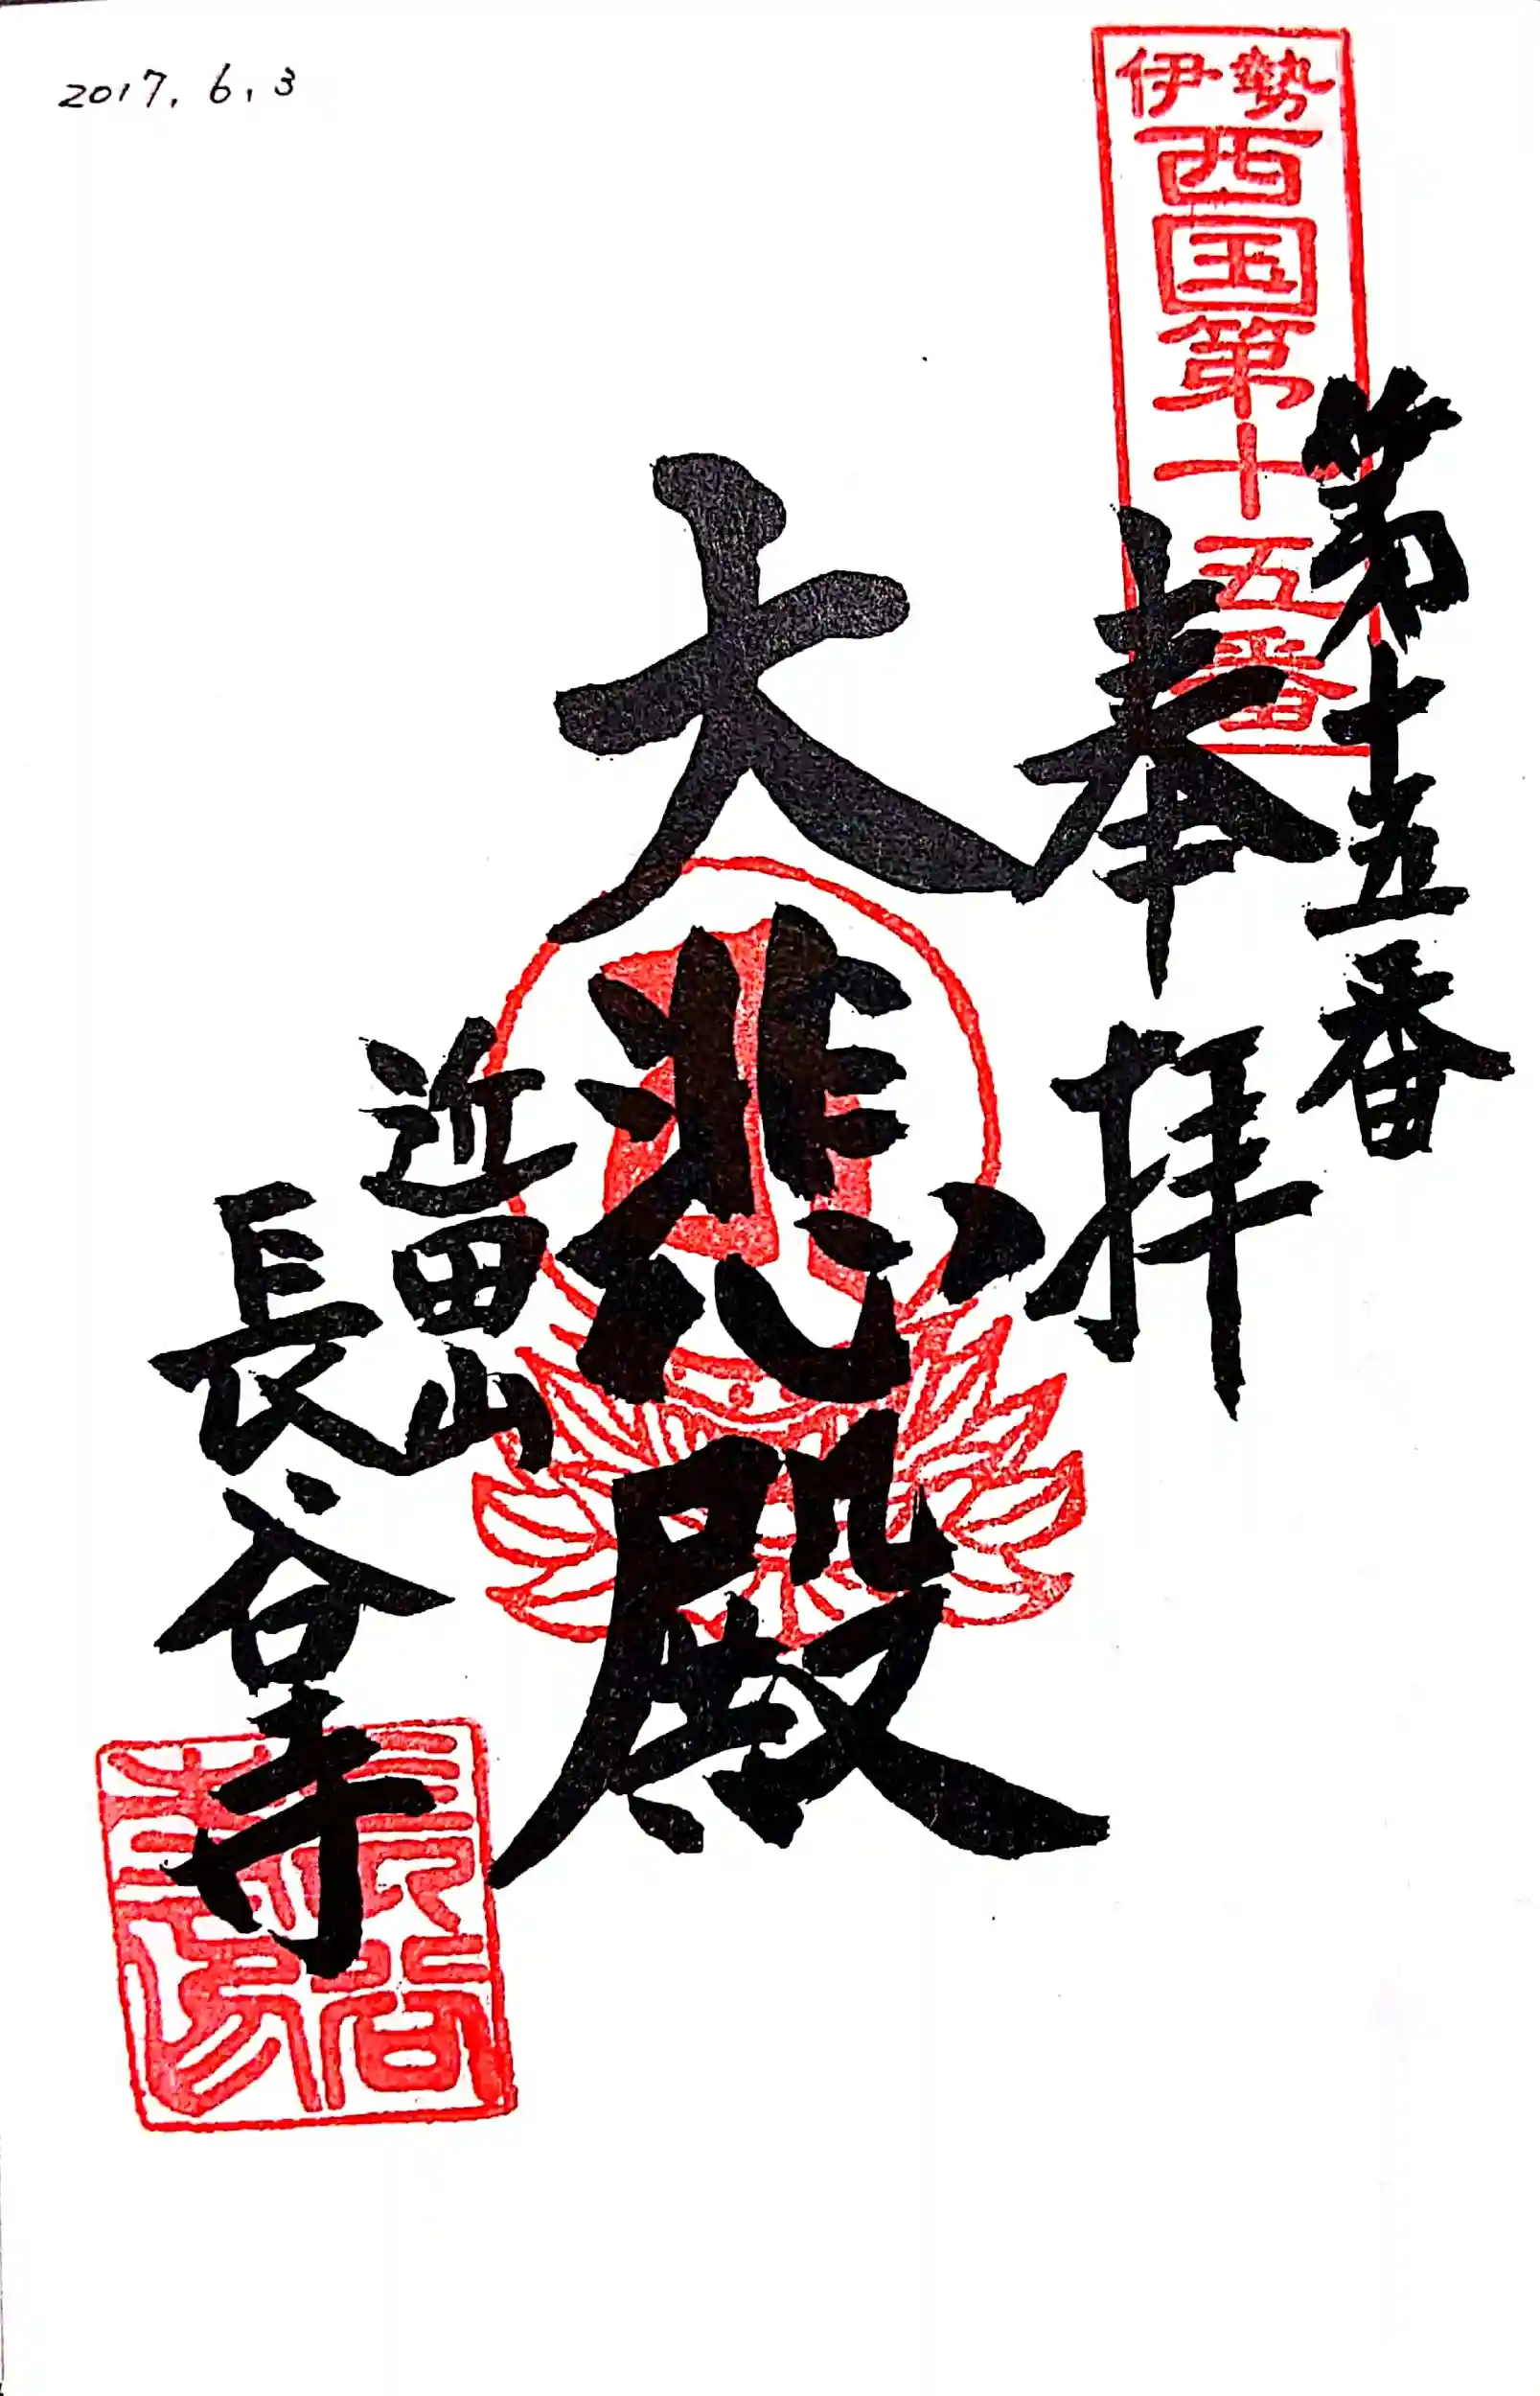 2017. 6. 3
伊勢
西国第十五番
第十五番
奉拝
大悲殿
近田山
長谷寺